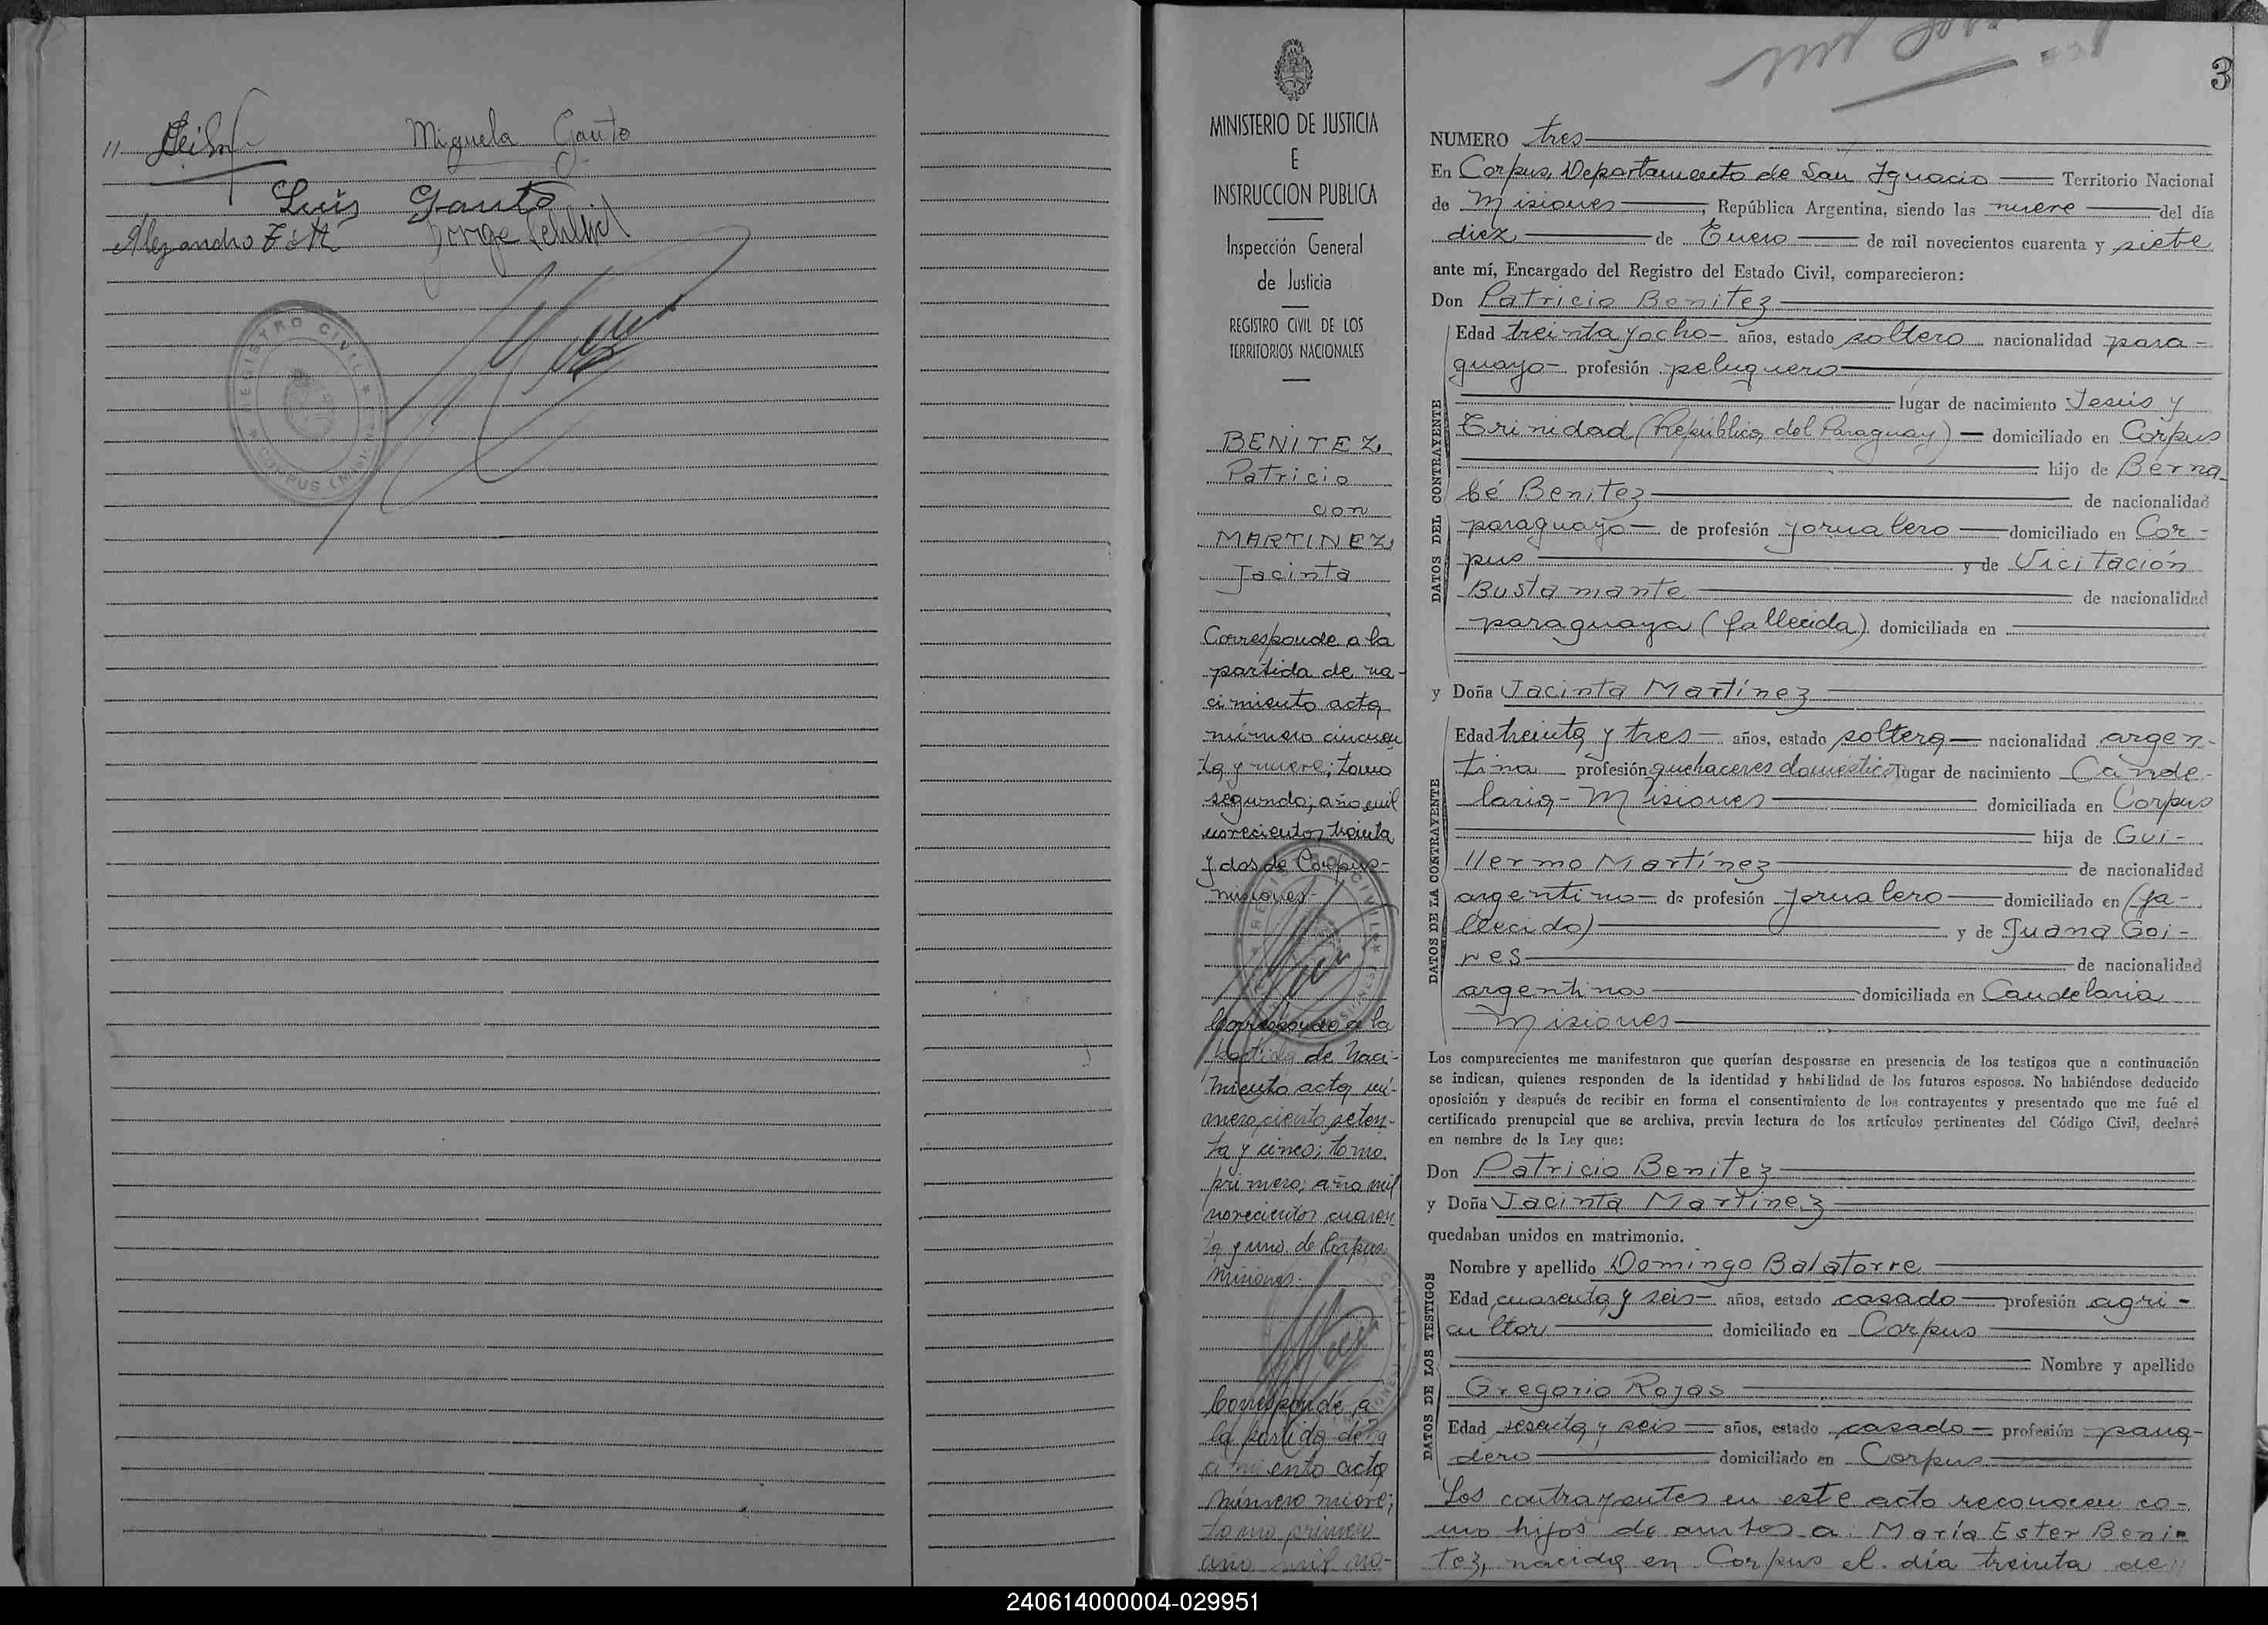 Miguela Gauto
Luis Gauto
Alejandro
Jorge
REGISTRO CIVIL
CORPUS
MINISTERIO DE JUSTICIA
E
INSTRUCCION PUBLICA
Inspección General
de Justicia
REGISTRO CIVIL DE LOS
TERRITORIOS NACIONALES
BENITEZ,
Patricio
con
MARTINEZ,
Jacinta
Corresponde a la
partida de na-
cimiento acta
número cincuen
ta y nueve; tomo
segundo; año mil
novecientos treinta
y dos de Corpus-
misiones-
Corresponde a la
partida de naci-
miento acta nú-
mero ciento seten-
ta y cinco; tomo
primero; año mil
novecientos cuaren
ta y uno de Corpus
Misiones-
Corresponde a
la partida de na
cimiento acta
número nueve;
tomo primero
año mil no-
3
NUMERO tres
En Corpus, Departamento de San Ignacio Territorio Nacional
de Misiones, República Argentina, siendo las nueve del día
diez de Enero de mil novecientos cuarenta y siete
ante mí, Encargado del Registro del Estado Civil, comparecieron:
Don Patricio Benitez
DATOS DEL CONTRAYENTE
Edad treinta y ocho- años, estado soltero nacionalidad para-
guayo- profesión peluquero
lugar de nacimiento Jesús y
Trinidad (República del Paraguay) domiciliado en Corpus
hijo de Berna-
bé Benitez de nacionalidad
paraguayo de profesión jornalero domiciliado en Cor-
pus y de Vicitación
Bustamante de nacionalidad
paraguaya (fallecida) domiciliada en
y Doña Jacinta Martínez
DATOS DE LA CONTRAYENTE
Edad treinta y tres- años, estado soltera nacionalidad argen-
tina profesión quehaceres domésticos lugar de nacimiento Cande-
laria-Misiones domiciliada en Corpus
hija de Gui-
llermo Martínez de nacionalidad
argentino- de profesión jornalero domiciliado en (fa-
llecido) y de Juana Goi-
nes de nacionalidad
argentina domiciliada en Candelaria
Misiones
Los comparecientes me manifestaron que querían desposarse en presencia de los testigos que a continuación
se indican, quienes responden de la identidad y habilidad de los futuros esposos. No habiéndose deducido
oposición y después de recibir en forma el consentimiento de los contrayentes y presentado que me fué el
certificado prenupcial que se archiva, previa lectura de los artículos pertinentes del Código Civil, declaré
en nombre de la Ley que:
Don Patricio Benitez
y Doña Jacinta Martínez
quedaban unidos en matrimonio.
DATOS DE LOS TESTIGOS
Nombre y apellido Domingo Balatorre
Edad cuarenta y seis- años, estado casado profesión agri-
cultor domiciliado en Corpus
Nombre y apellido
Gregorio Rojas
Edad sesenta y seis años, estado casado- profesión pana-
dero domiciliado en Corpus
Los contrayentes en este acto reconocen co-
mo hijos de ambos a: María Ester Beni-
tez, nacida en Corpus el día treinta de
240614000004-029951